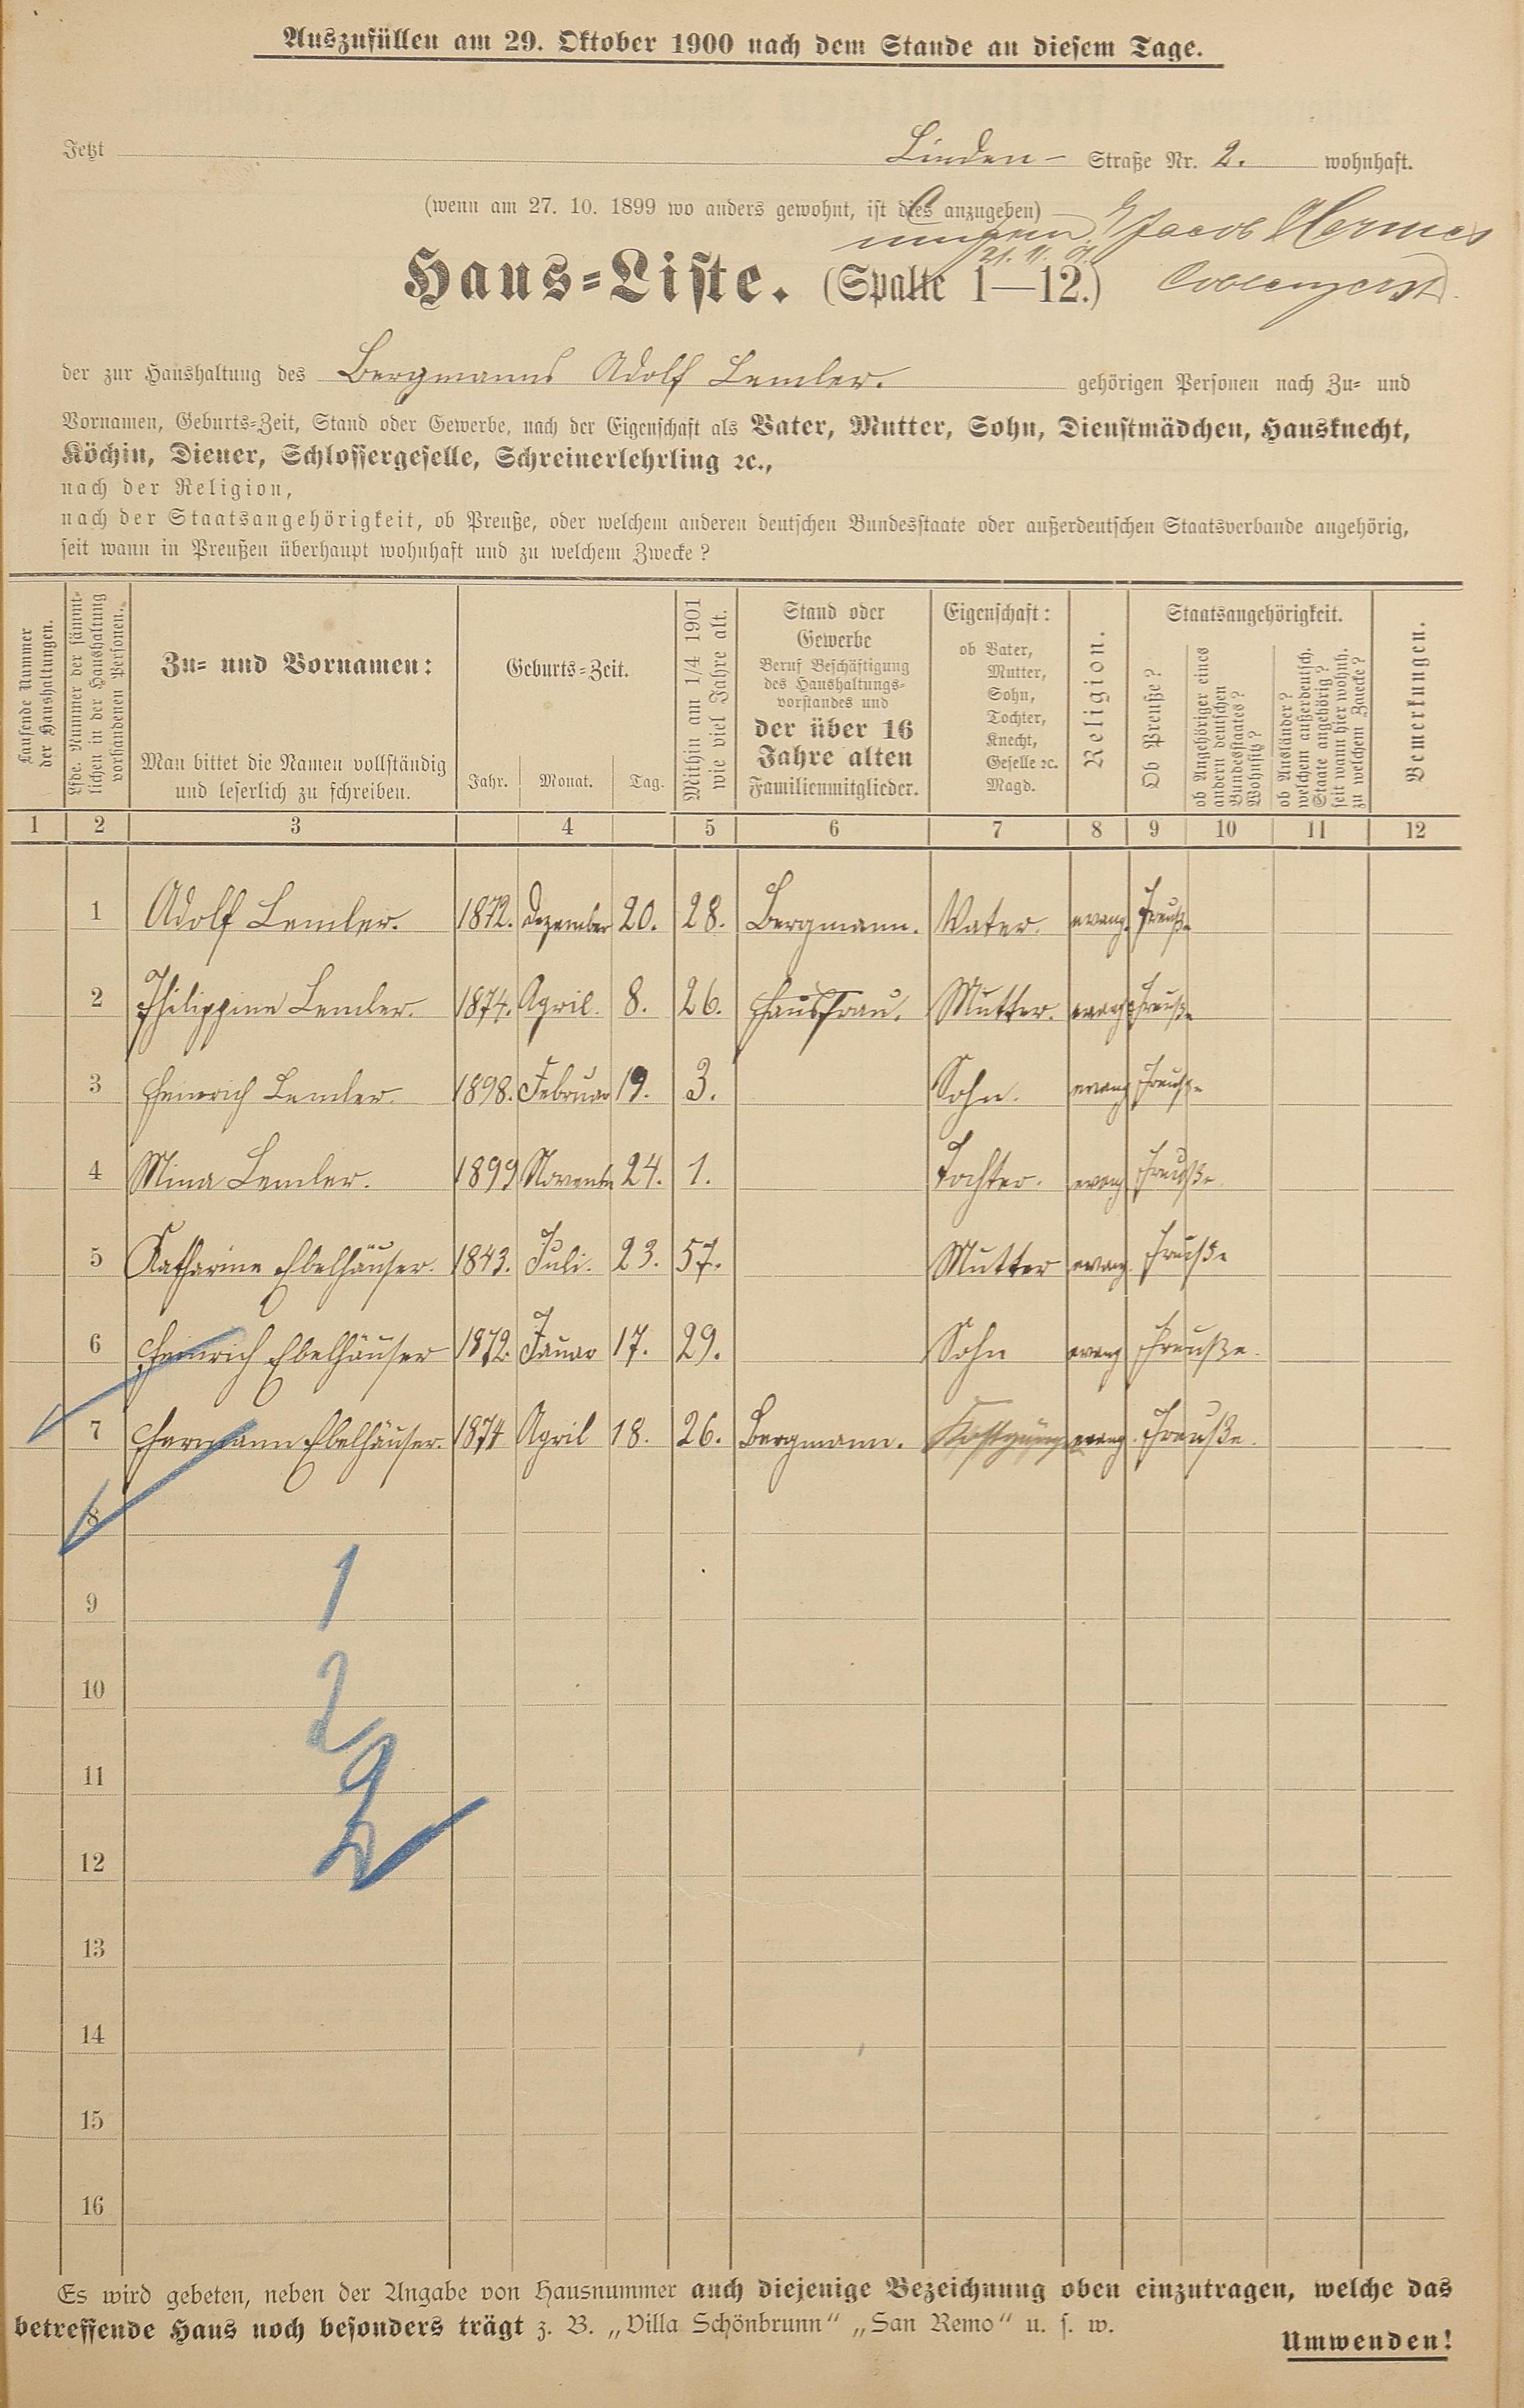 Auszufüllen am 29. Oktober 1900 nach dem Stande an diesem Tage.
Jetzt Linden- Straße Nr. 2. wohnhaft.
(wenn am 27. 10. 1899 wo anders gewohnt, ist dies anzugeben)
Jacob Hermes
21. 11. 01.
Haus-Liste. (Spalte 1—12.)
der zur Haushaltung des Bergmanns Adolf Lemler. gehörigen Personen nach Zu- und
Vornamen, Geburts-Zeit, Stand oder Gewerbe, nach der Eigenschaft als Vater, Mutter, Sohn, Dienstmädchen, Hausknecht,
Köchin, Diener, Schlossergeselle, Schreinerlehrling ꝛc.,
nach der Religion,
nach der Staatsangehörigkeit, ob Preuße, oder welchem anderen deutschen Bundesstaate oder außerdeutschen Staatsverbande angehörig,
seit wann in Preußen überhaupt wohnhaft und zu welchem Zwecke?
Laufende Nummer
der Haushaltungen.
Lfde. Nummer der sämmt-
lichen in der Haushaltung
vorhandenen Personen.
Zu- und Vornamen:
Man bittet die Namen vollständig
und leserlich zu schreiben.
Geburts-Zeit.
Jahr. Monat. Tag.
Mithin am 1/4 1901
wie viel Jahre alt.
Stand oder
Gewerbe
Beruf Beschäftigung
des Haushaltungs-
vorstandes und
der über 16
Jahre alten
Familienmitglieder.
Eigenschaft:
ob Vater,
Mutter,
Sohn,
Tochter,
Knecht,
Geselle ꝛc.
Magd.
Religion.
Staatsangehörigkeit.
Ob Preuße?
ob Angehöriger eines
andern deutschen
Bundesstaates?
Wohnsitz?
ob Ausländer?
welchem außerdeutsch.
Staate angehörig?
seit wann hier wohnh.
zu welchem Zwecke?
Bemerkungen.
1 2 3 4 5 6 7 8 9 10 11 12
1 Adolf Lemler. 1872. Dezember 20. 28. Bergmann. Vater. evang. Preuße
2 Philippine Lemler. 1874. April. 8. 26. Hausfrau. Mutter. evang Preuße
3 Heinrich Lemler. 1898. Februar 19. 3. Sohn. evang Preuße
4 Mina Lemler. 1899 Novemb 24. 1. Tochter. evang Preuße
5 Katharine Ebelhäuser. 1843. Juli. 23. 57. Mutter evang. Preuße
6 Heinrich Ebelhäuser 1872. Januar 17. 29. Sohn evang Preuße.
7 Hermann Ebelhäuser. 1874 April 18. 26. Bergmann. Kostgänger evang Preuße.
8
9 1
10 2
11
12
13
14
15
16
Es wird gebeten, neben der Angabe von Hausnummer auch diejenige Bezeichnung oben einzutragen, welche das
betreffende Haus noch besonders trägt z. B. „Villa Schönbrunn“ „San Remo“ u. s. w.
Umwenden!